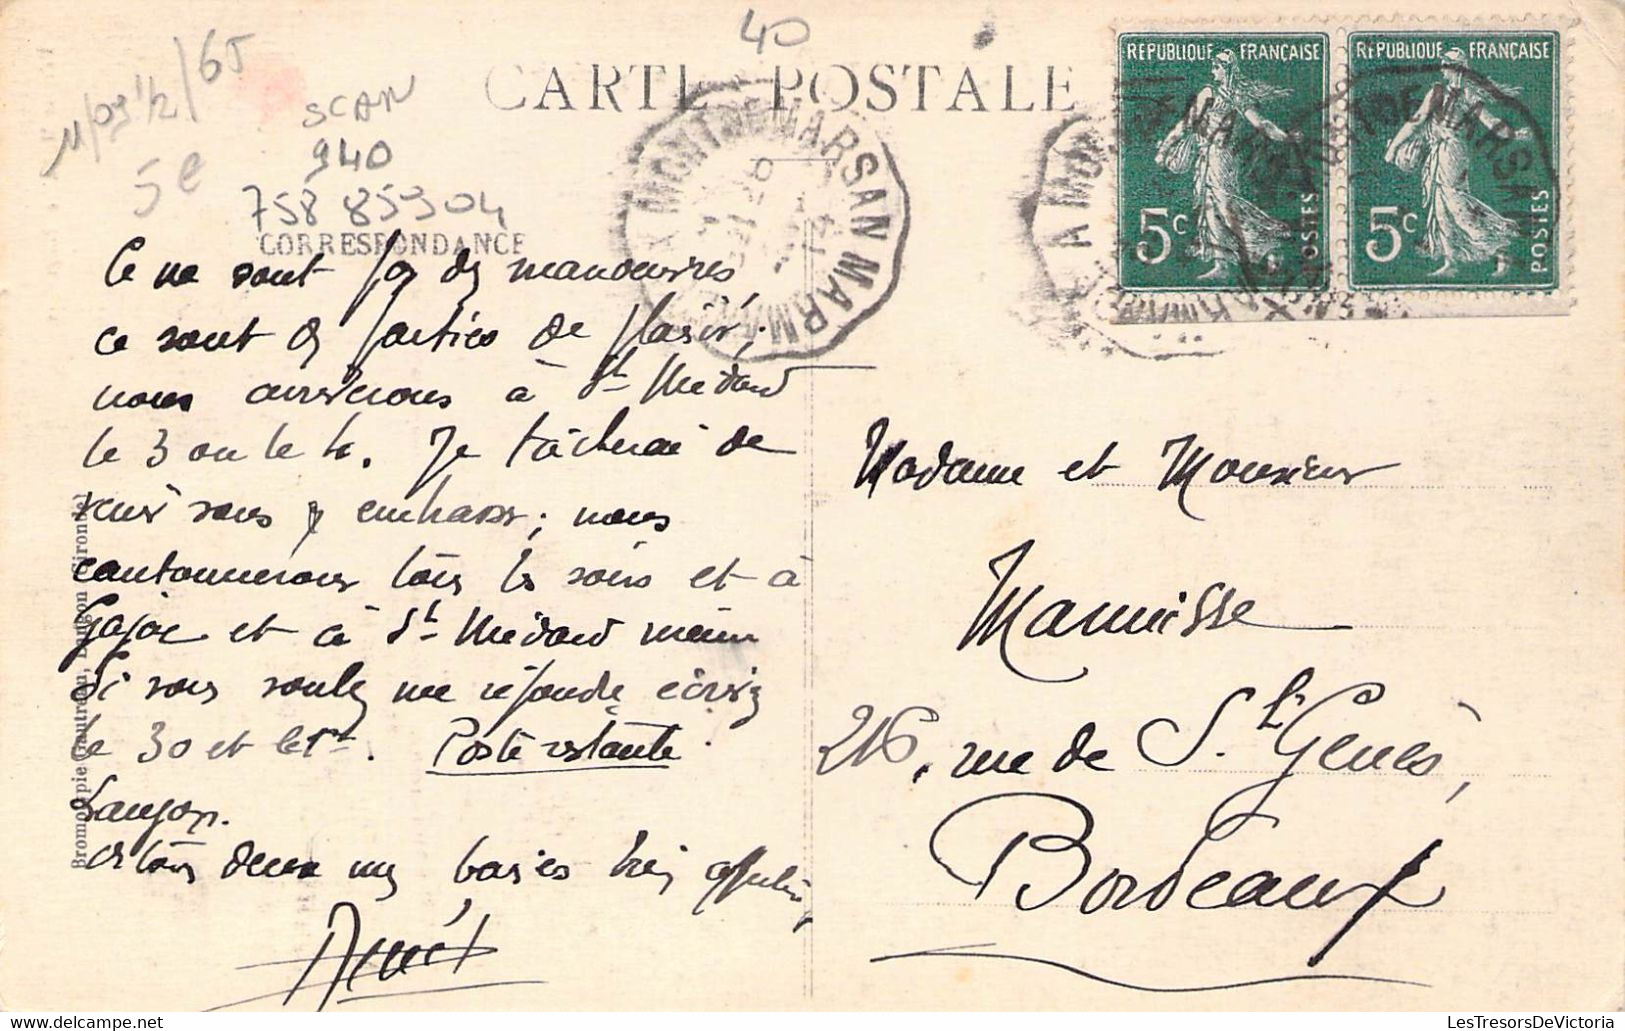 40
11/09 1/2/65
5e
SCAN
940
758 85904
CARTE POSTALE
CORRESPONDANCE
MONT DE MARSAN MARMANDE
REPUBLIQUE FRANÇAISE
5c
POSTES
REPUBLIQUE FRANÇAISE
5c
POSTES
Ce ne sont pas des manoeuvres,
ce sont des parties de plaisir;
nous arriverons à St Médard
le 3 ou le 4. Je tâcherai de
venir vous embrasser; nous
cantonnerons tous les soirs et à
Gajac et à St Médard même
Si vous voulez me répondre écrivez
le 30 et le 1er. Poste restante.
Langon.
A tous deux mes baisers bien
Madame et Monsieur
216, rue de St Genès,
Bordeaux
Bromotypie Gautreau, Langon (Gironde)
LesTresorsDeVictoria